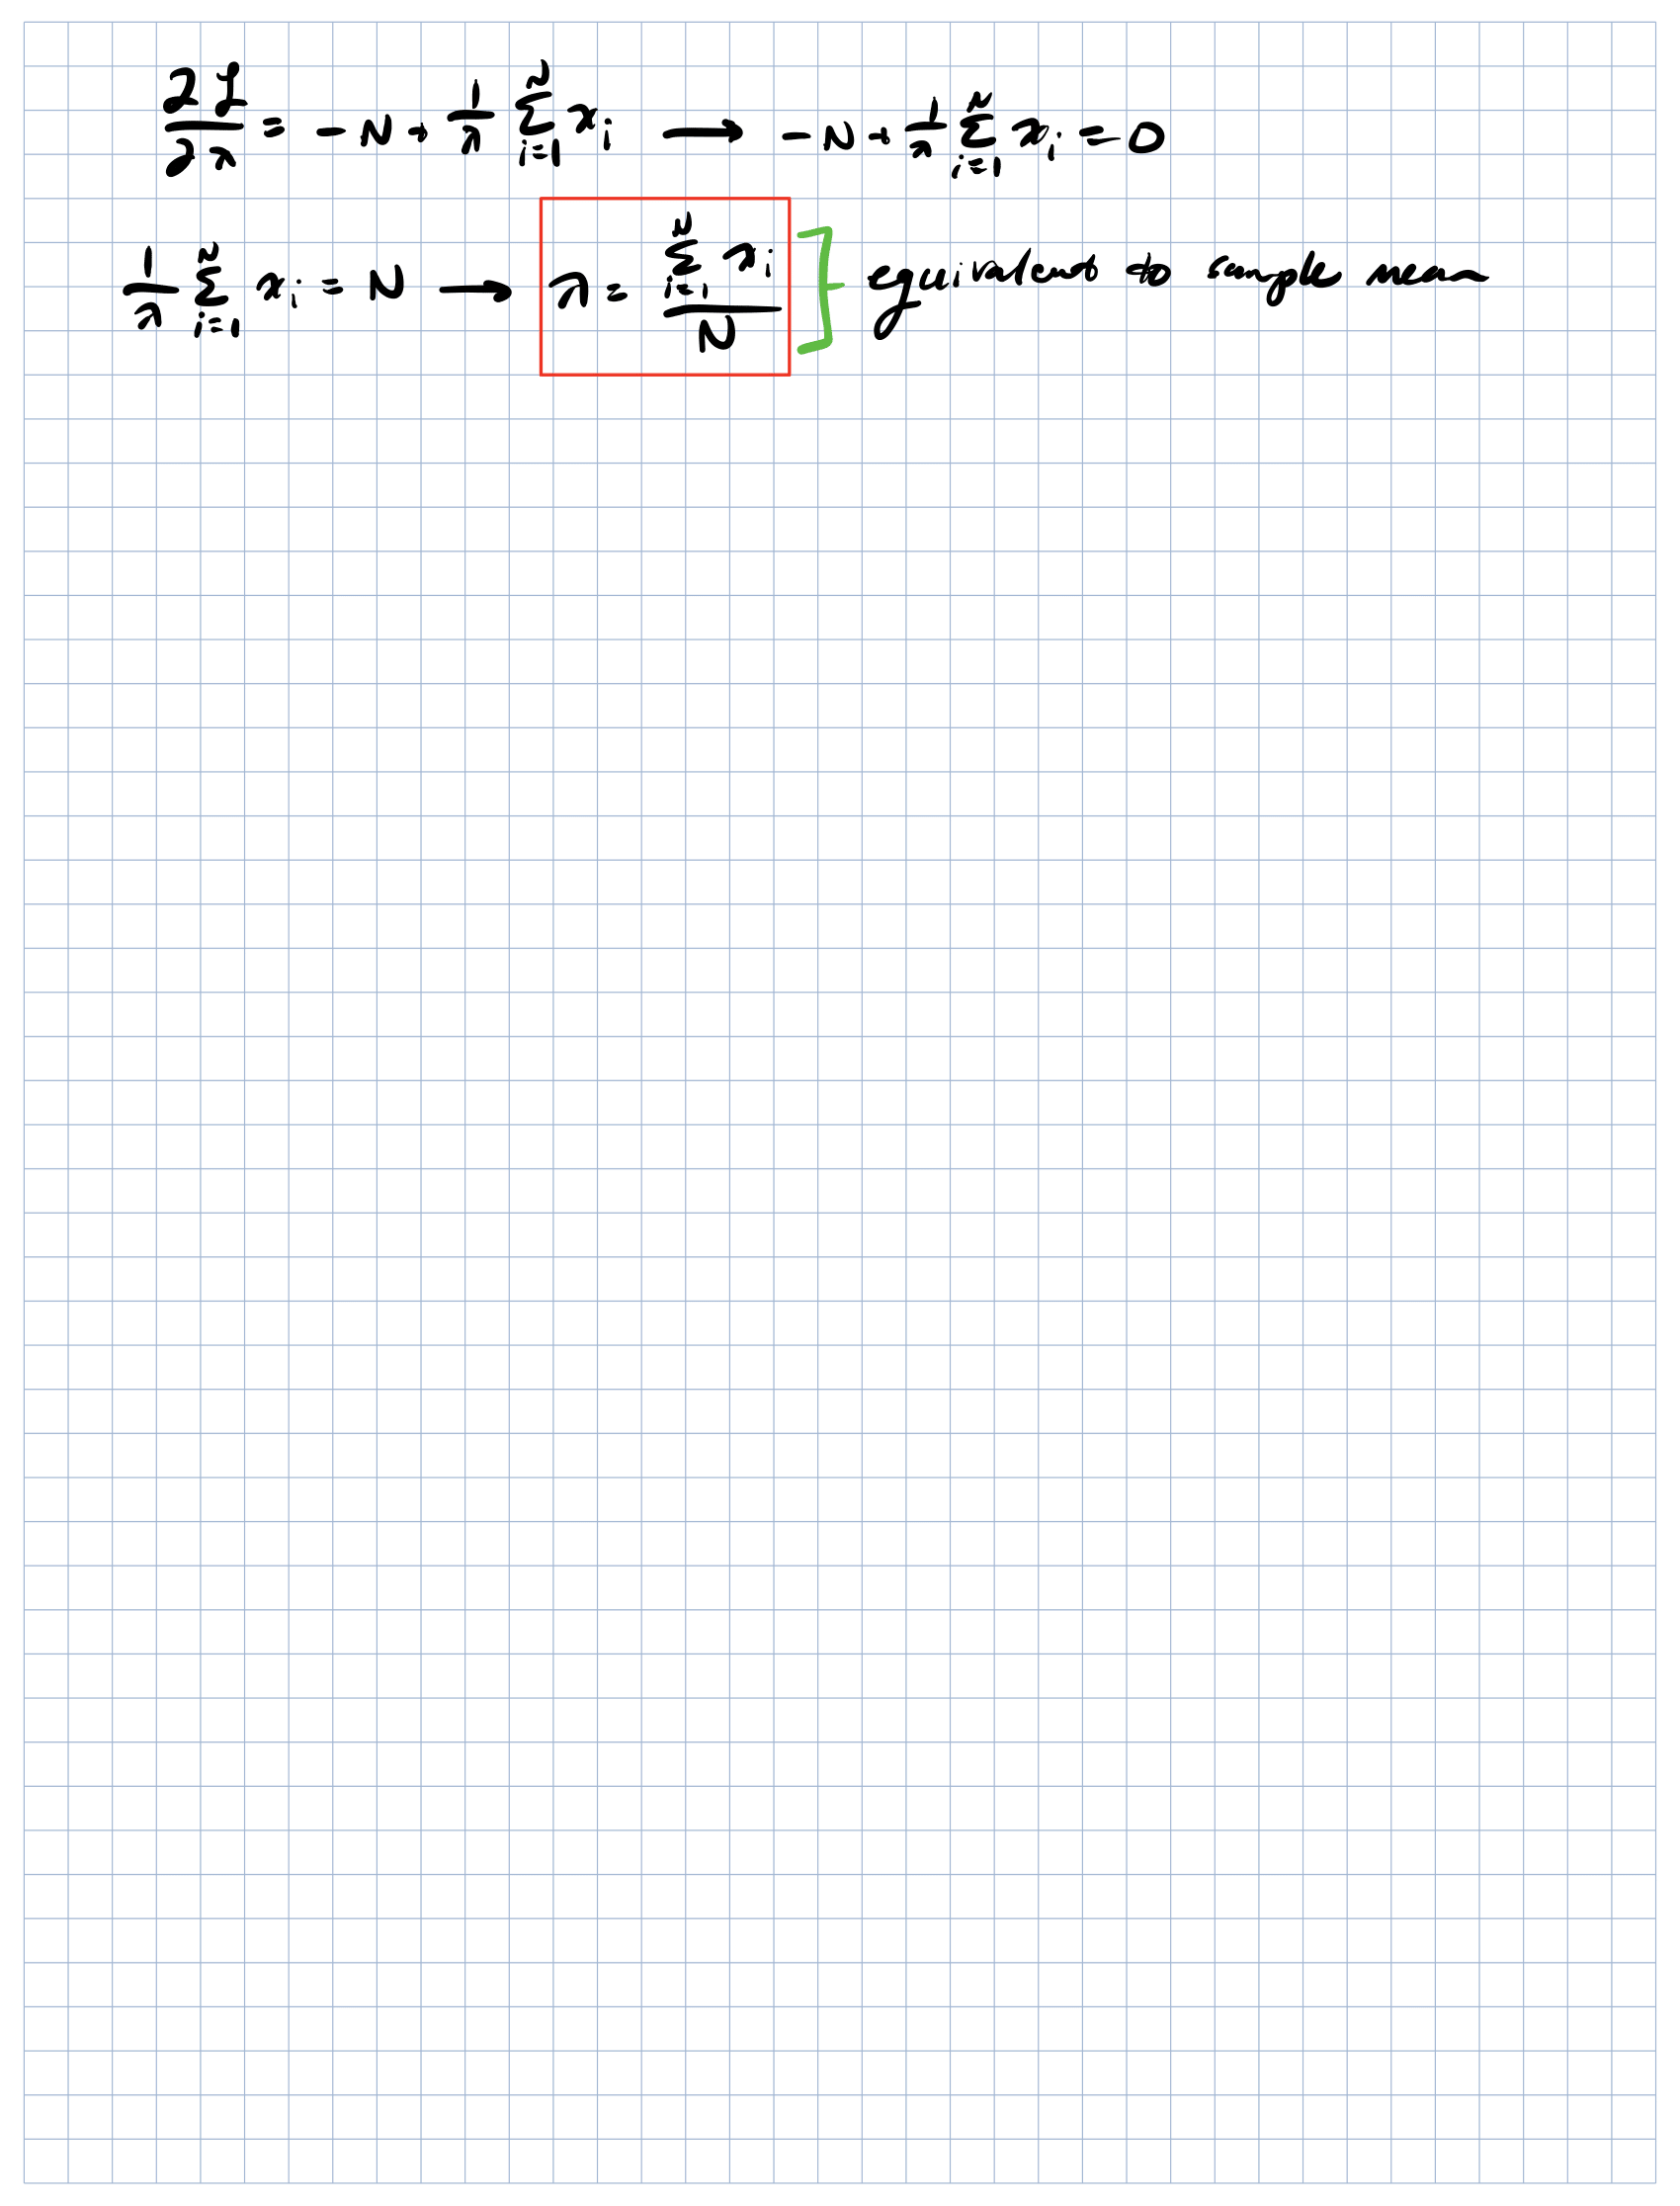 ∂ℒ/∂λ = -N + 1/λ ∑_{i=1}^{N} x_i ⟶ -N + 1/λ ∑_{i=1}^{N} x_i = 0
1/λ ∑_{i=1}^{N} x_i = N ⟶ λ = ∑_{i=1}^{N} x_i / N } equivalent to sample mean